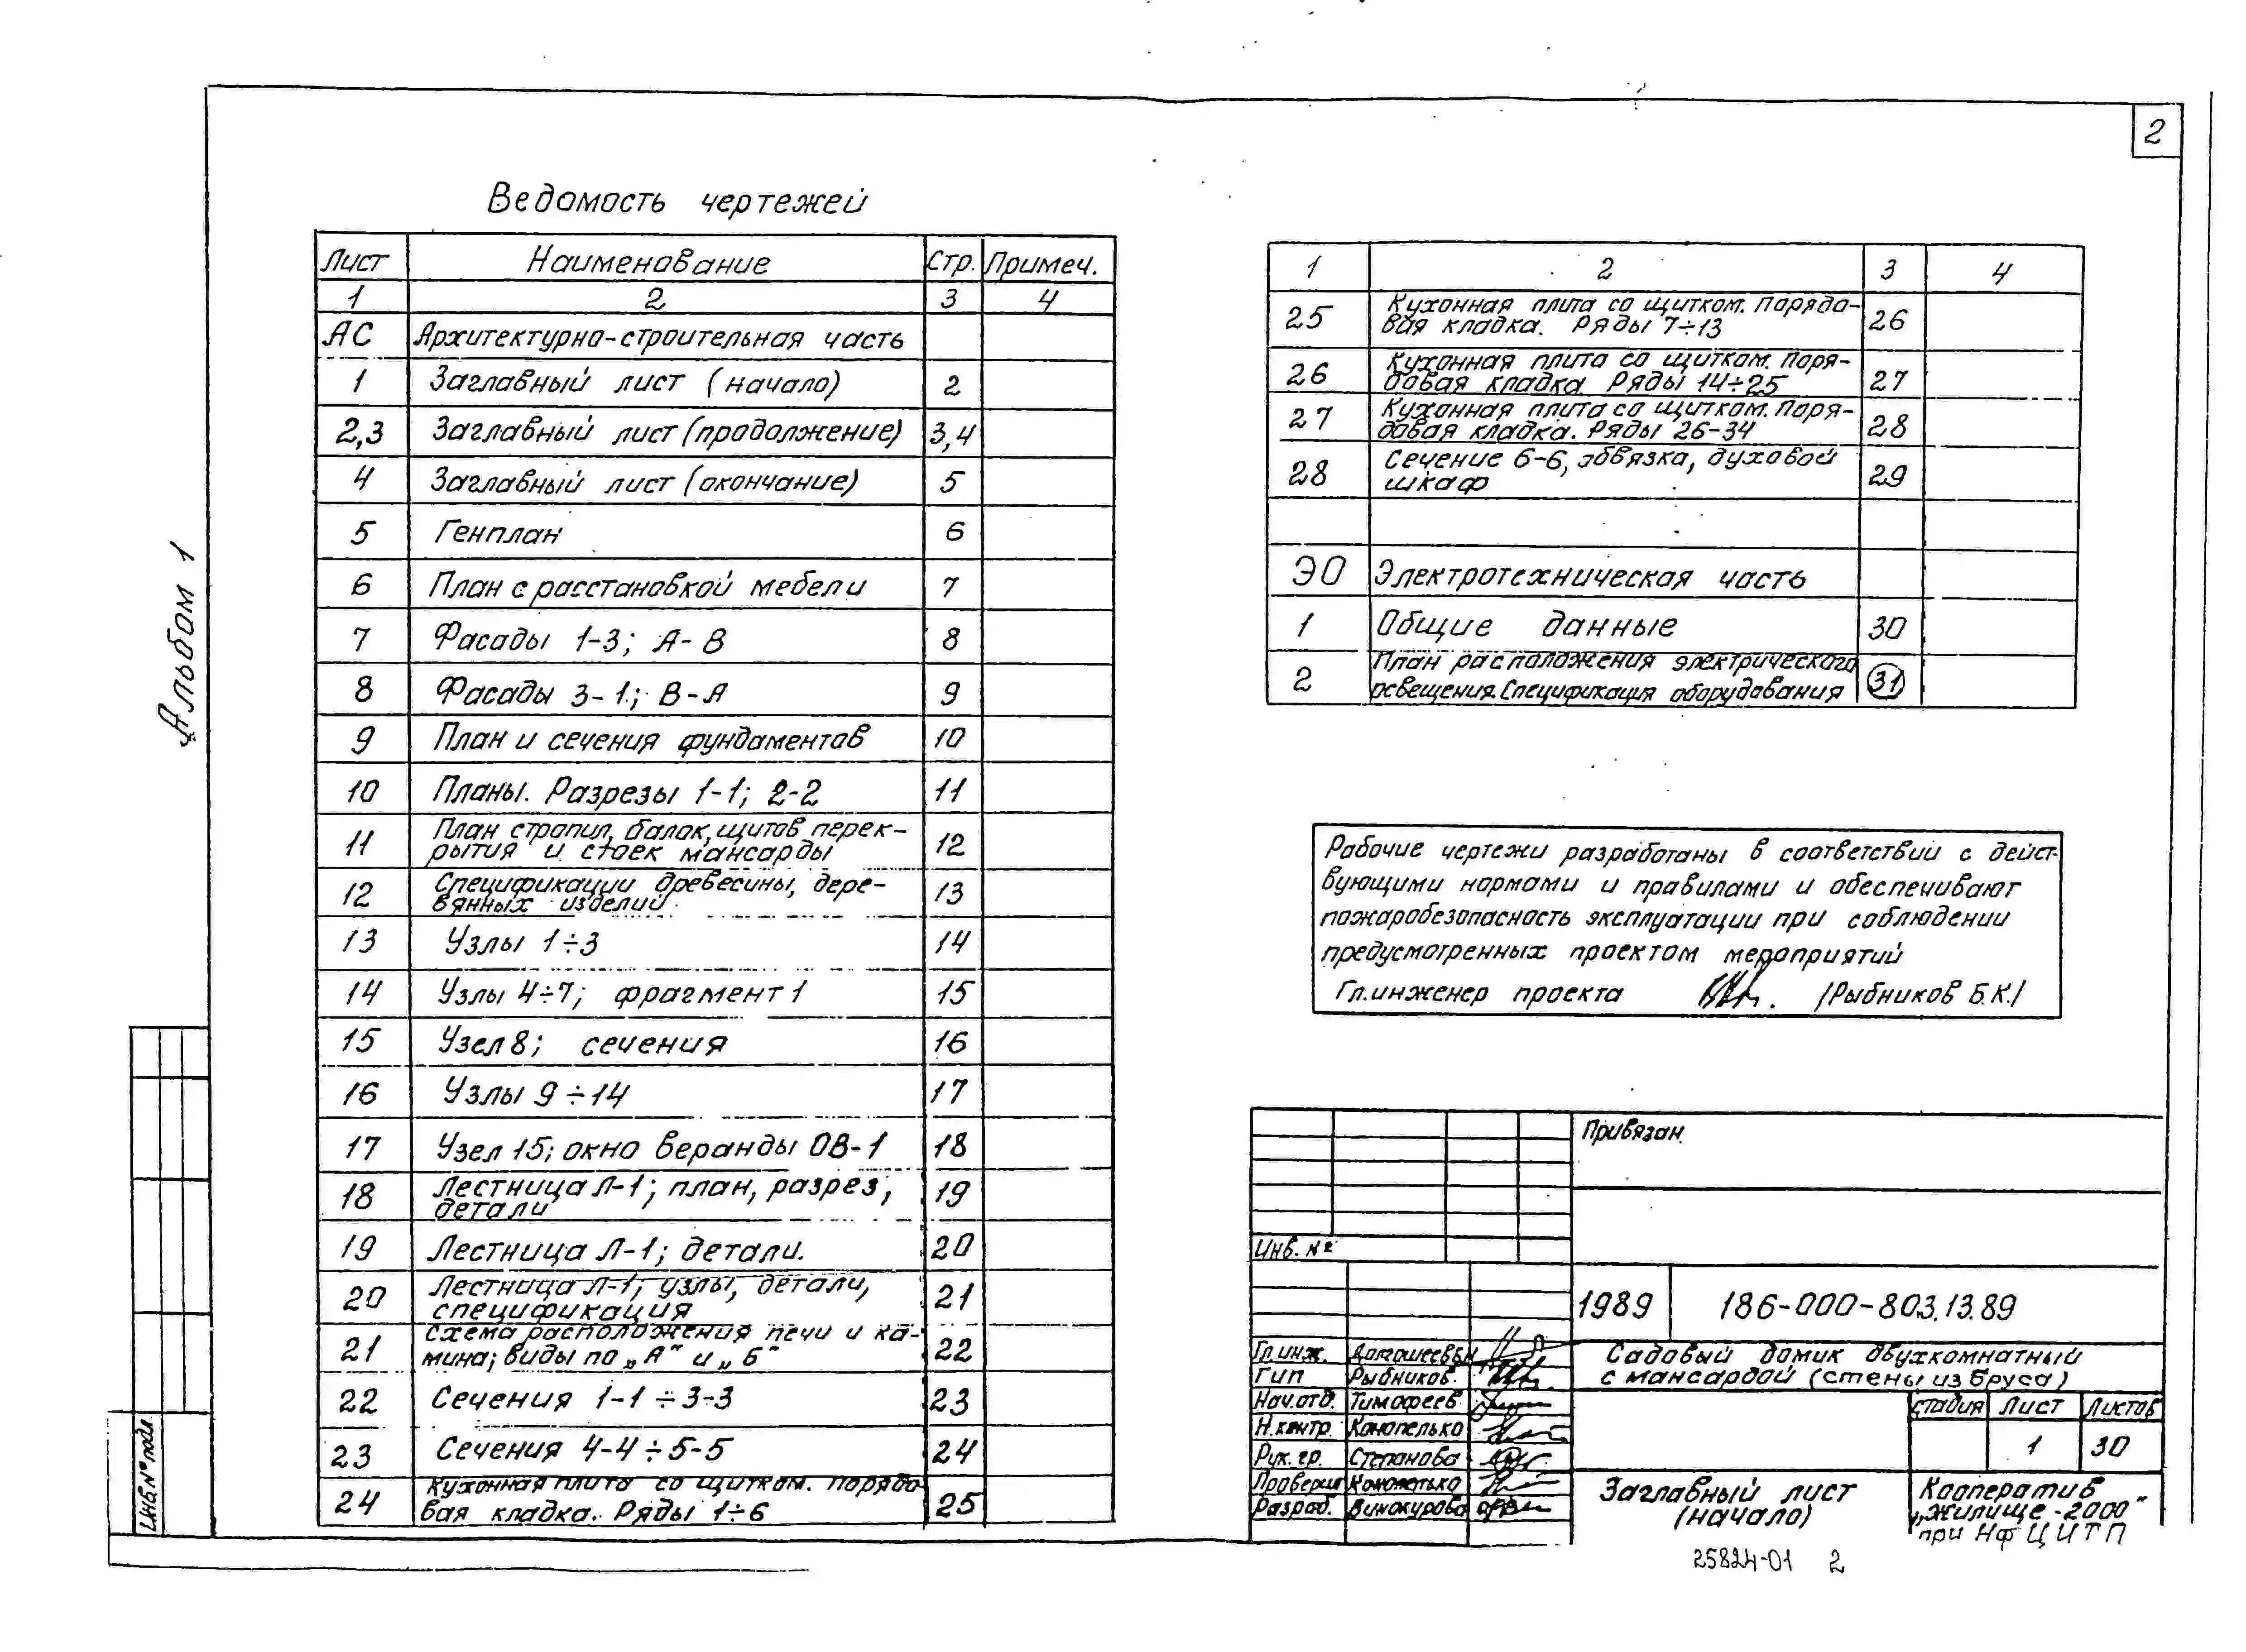 2
Альбом 1
Ведомость чертежей
Лист Наименование Стр. Примеч.
1 2 3 4
АС Архитектурно-строительная часть
1 Заглавный лист (начало) 2
2,3 Заглавный лист (продолжение) 3,4
4 Заглавный лист (окончание) 5
5 Генплан 6
6 План с расстановкой мебели 7
7 Фасады 1-3; А-В 8
8 Фасады 3-1; В-А 9
9 План и сечения фундаментов 10
10 Планы. Разрезы 1-1; 2-2 11
11 План стропил, балок, щитов перек-
рытия и стоек мансарды 12
12 Спецификации древесины, дере-
вянных изделий 13
13 Узлы 1÷3 14
14 Узлы 4÷7; фрагмент 1 15
15 Узел 8; сечения 16
16 Узлы 9÷14 17
17 Узел 15; окно веранды ОВ-1 18
18 Лестница Л-1; план, разрез,
детали 19
19 Лестница Л-1; детали. 20
20 Лестница Л-1; узлы, детали,
спецификация 21
21 Схема расположения печи и ка-
мина; виды по „А" и „Б" 22
22 Сечения 1-1÷3-3 23
23 Сечения 4-4÷5-5 24
24 Кухонная плита со щитком. Порядо-
вая кладка. Ряды 1÷6 25
1 2 3 4
25 Кухонная плита со щитком. Порядо-
вая кладка. Ряды 7÷13 26
26 Кухонная плита со щитком. Поря-
довая кладка. Ряды 14÷25 27
27 Кухонная плита со щитком. Поря-
довая кладка. Ряды 26-34 28
28 Сечение 6-6, обвязка, духовой
шкаф 29
ЭО Электротехническая часть
1 Общие данные 30
2 План расположения электрического
освещения. Спецификация оборудования 31
Рабочие чертежи разработаны в соответствии с дейст-
вующими нормами и правилами и обеспечивают
пожаробезопасность эксплуатации при соблюдении
предусмотренных проектом мероприятий
Гл. инженер проекта /Рыбников Б.К./
Привязан
Инв. №
1989 186-000-803.13.89
Садовый домик двухкомнатный
с мансардой (стены из бруса)
Гл. инж.
Гип Рыбников
Нач. отд. Тимофеев
Н. контр. Конопелько
Рук. гр. Степанова
Проверил Конопелько
Разраб. Винокурова
стадия Лист Листов
1 30
Заглавный лист
(начало)
Кооператив
„Жилище-2000"
при НФ ЦИТП
Инв. № подл.
25824-01 2